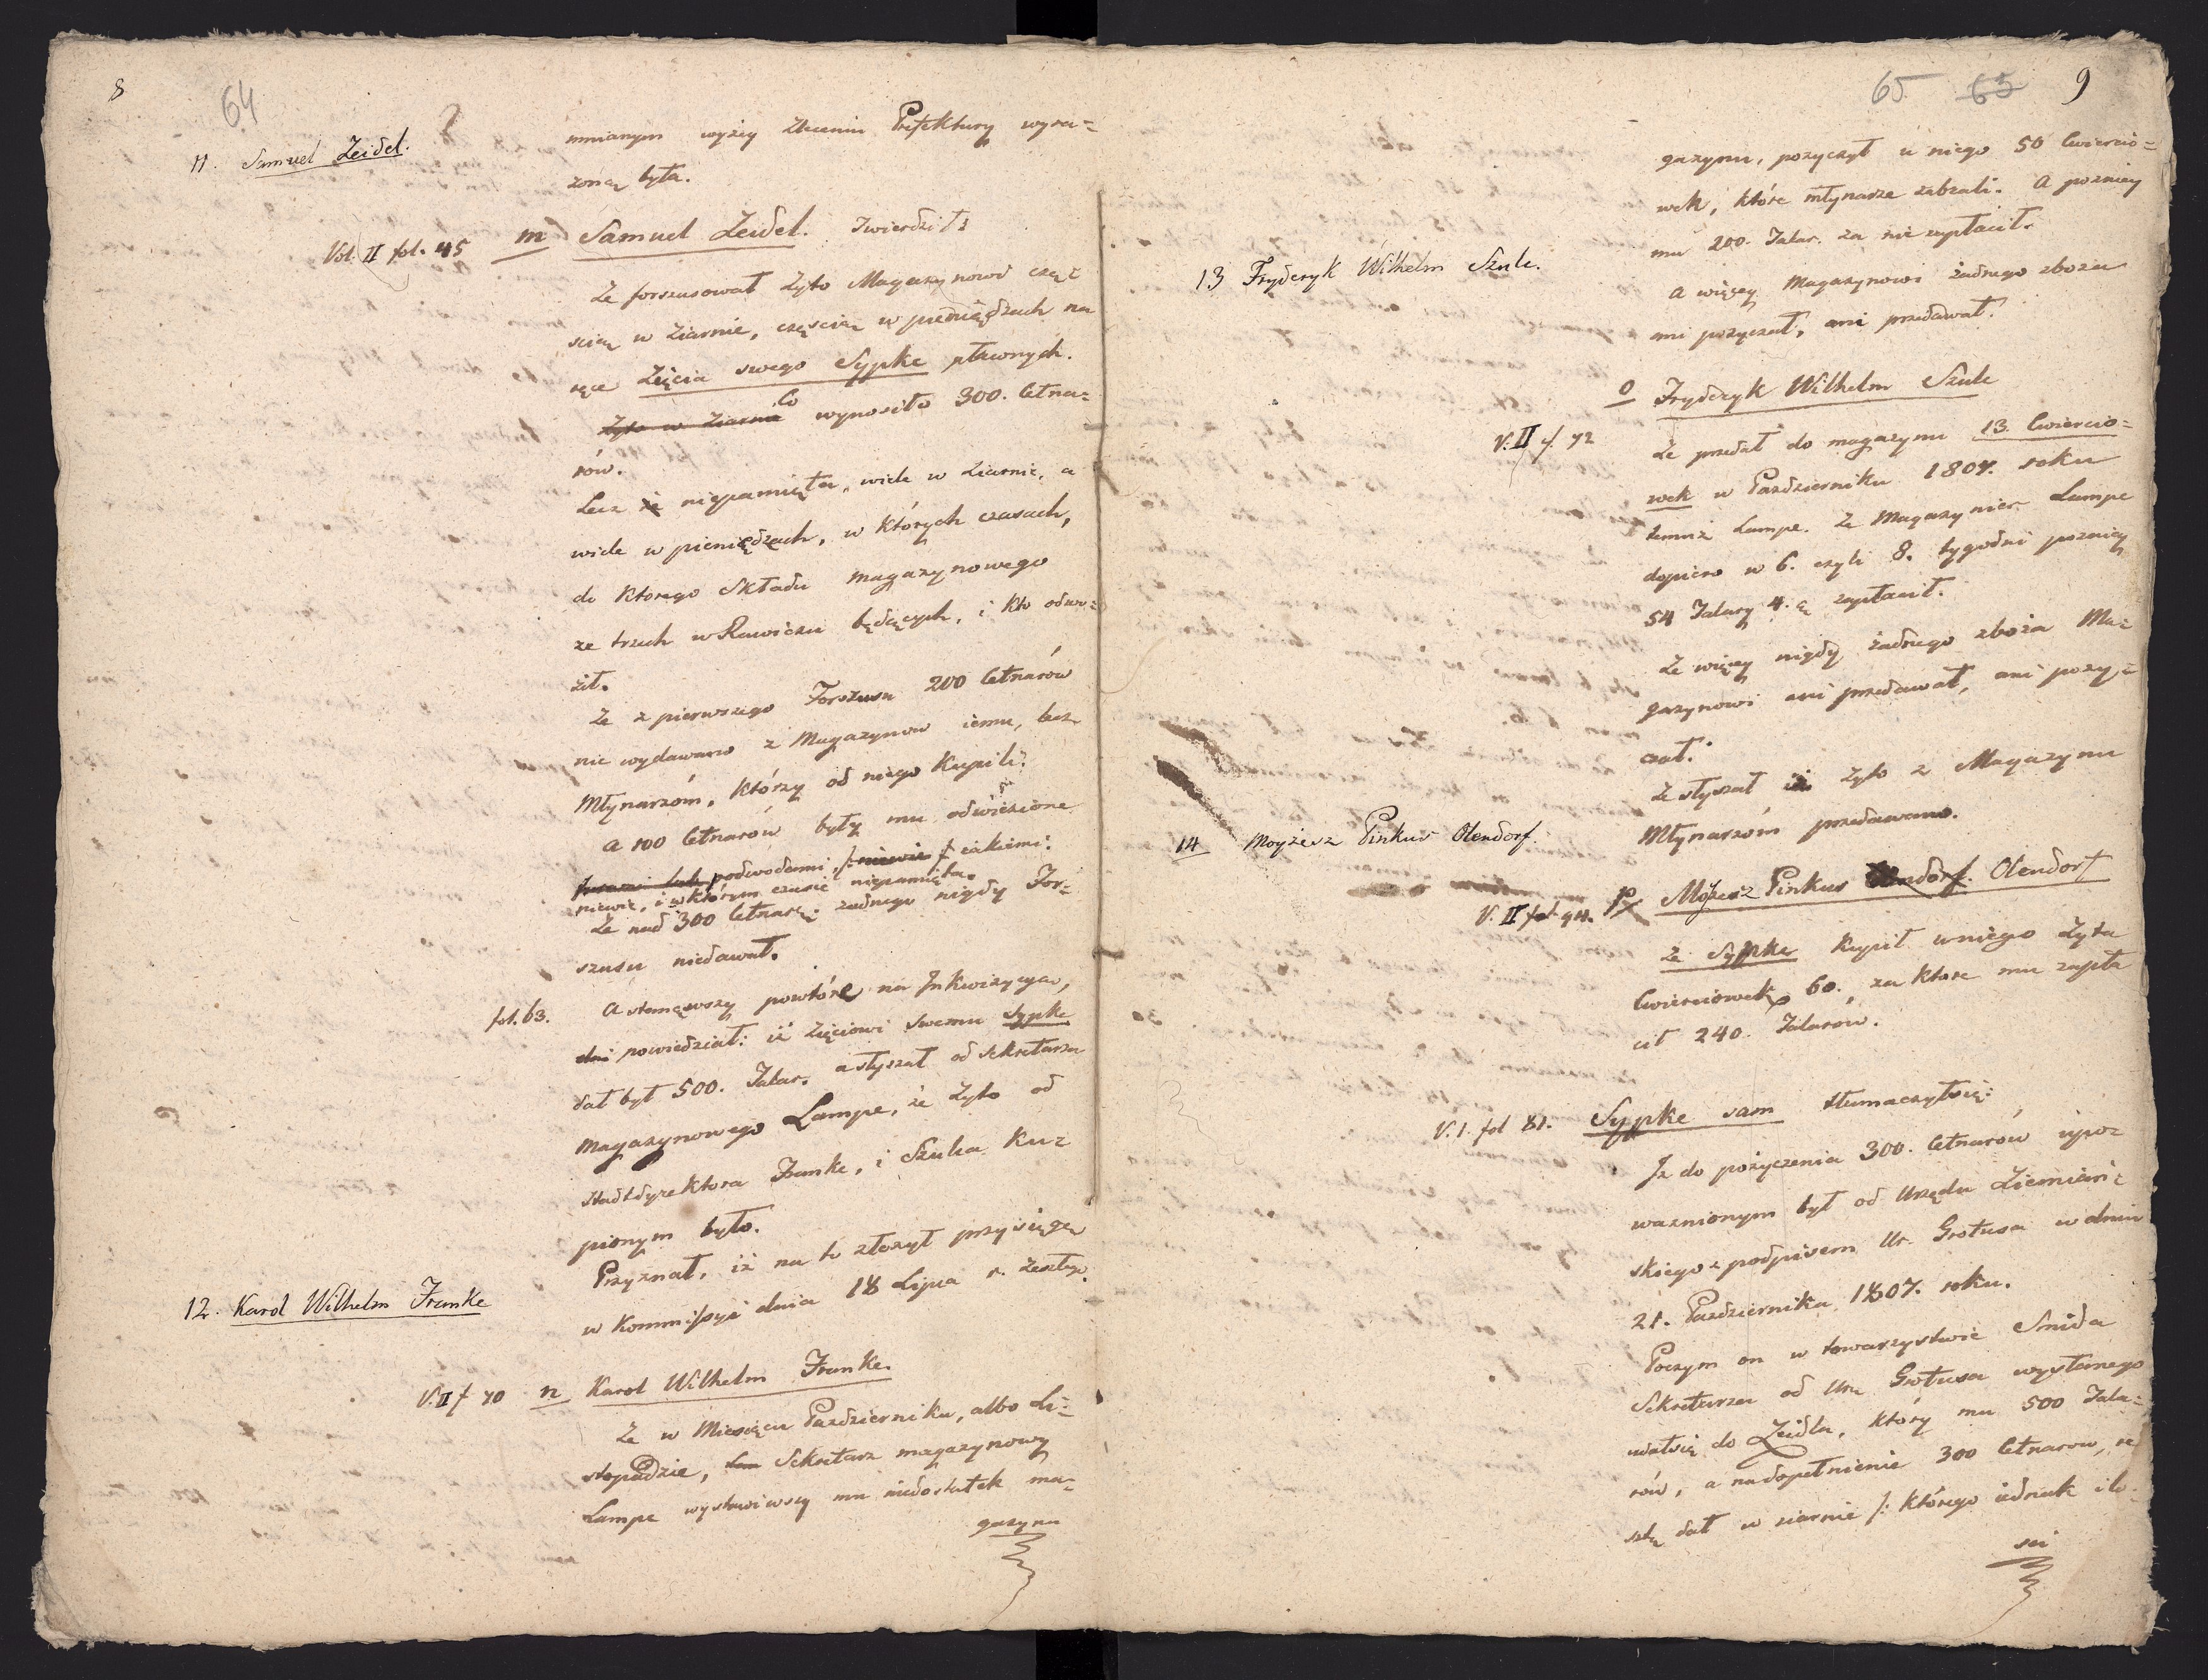 8
64
11. Samuel Zeidel.
mnianym wyżey Zleceniu Prefektury wyra=
żoną była.
Vol. II fol. 45
m Samuel Zeidel. Twierdził:
Że forszusował Żyto Magazynowi częś
scią w Ziarnie, częścią w pieniędzach na
ręce Zięcia swego Sypke
Żyto w Ziarnie Co wynosiło 300. Cetna=
rów.
Lecz że niepamięta, wiele w Ziarnie, a
wiele w pieniędzach, w których czasach,
do którego Składu magazynowego
ze trzech w Rawiczu będących, i kto odwo=
ził.
Że z pierwszego Forszusu 200 Cetnarów
nie wydawano z Magazynow iemu, lecz
Młynarzóm, którzy od niego kupili.
A 100 Cetnarów były mu odwiezione
podwodami, niewie iakiemi:
niewie, i w którym czasie niepamięta.
Że nad 300 Cetnary żadnego nigdy For=
szusu niedawał.
fol. 63.
A stanąwszy powtóre na Inkwizycya,
powiedział: iż Zięciowi Swemu Sypke
dał był 500. Talar. a słyszał od Sekretarza
magazynowego Lampe, że Żyto od
Stadtdyrektora Franke, i Szulca Ku=
pionym było.
Przyznał, iż na to złożył przysięgę
w Kommissyi dnia 18 Lipca r. Zeszłego.
12. Karol Wilhelm Franke
V. II f 70
n Karol Wilhelm Franke.
Że w Miesiącu Październiku, albo Li=
stopadzie, Sekretarz magazynowy
Lampe wystawiwszy mu niedostatek ma=
gazynu
65 65 9
gazynu, pożyczył u niego 50 Cwiercio=
wek, które młynarze zabrali. A pozniey
mu 200. Talar. za nie zapłacił.
A więcey Magazynowi żadnego zboża
ani pożyczał, ani przedawał.
13 Fryderyk Wilhelm Szulc.
o Fryderyk Wilhelm Szulc
V. II f 72
Że przedał do magazynu 13. Cwiercio=
wek w Październiku 1807. roku
temuż Lampe. Że Magazynier Lampe
dopiero w 6. czyli 8. tygodni pozniey
54 Talary 4. zapłacił.
Że więcey nigdy żadnego zboża Ma=
gazynowi ani przedawał, ani pozy=
czał.
Że słyszał iż Żyto z Magazynu
Młynarzóm przedawano.
14 Moyżesz Pinkus Olendorf.
V. II fol
p Moyżesz Pinkus Olendorf. Olendorf
Że Sypke kupił u niego Żyta
Cwierciowek 60., za które mu zapła
cił 240. Talarow.
V. I. fol 81.
Sypke sam tłumaczył się:
Iż do pożyczenia 300. Cetnarów upo=
ważnionym był od Urzędu Ziemiań=
skiego z podpisem Ur. Grotusa w dniu
21. Października 1807. roku.
Poczym on w towarzystwie Smida
Sekretarza od Ur. Grotusa wysłanego
udał się do Zeidla, który mu 500 Tala=
rów, a na dopełnienie 300 Cetnarow, re
sztę dał w ziarnie /: którego iednak ilo=
sci